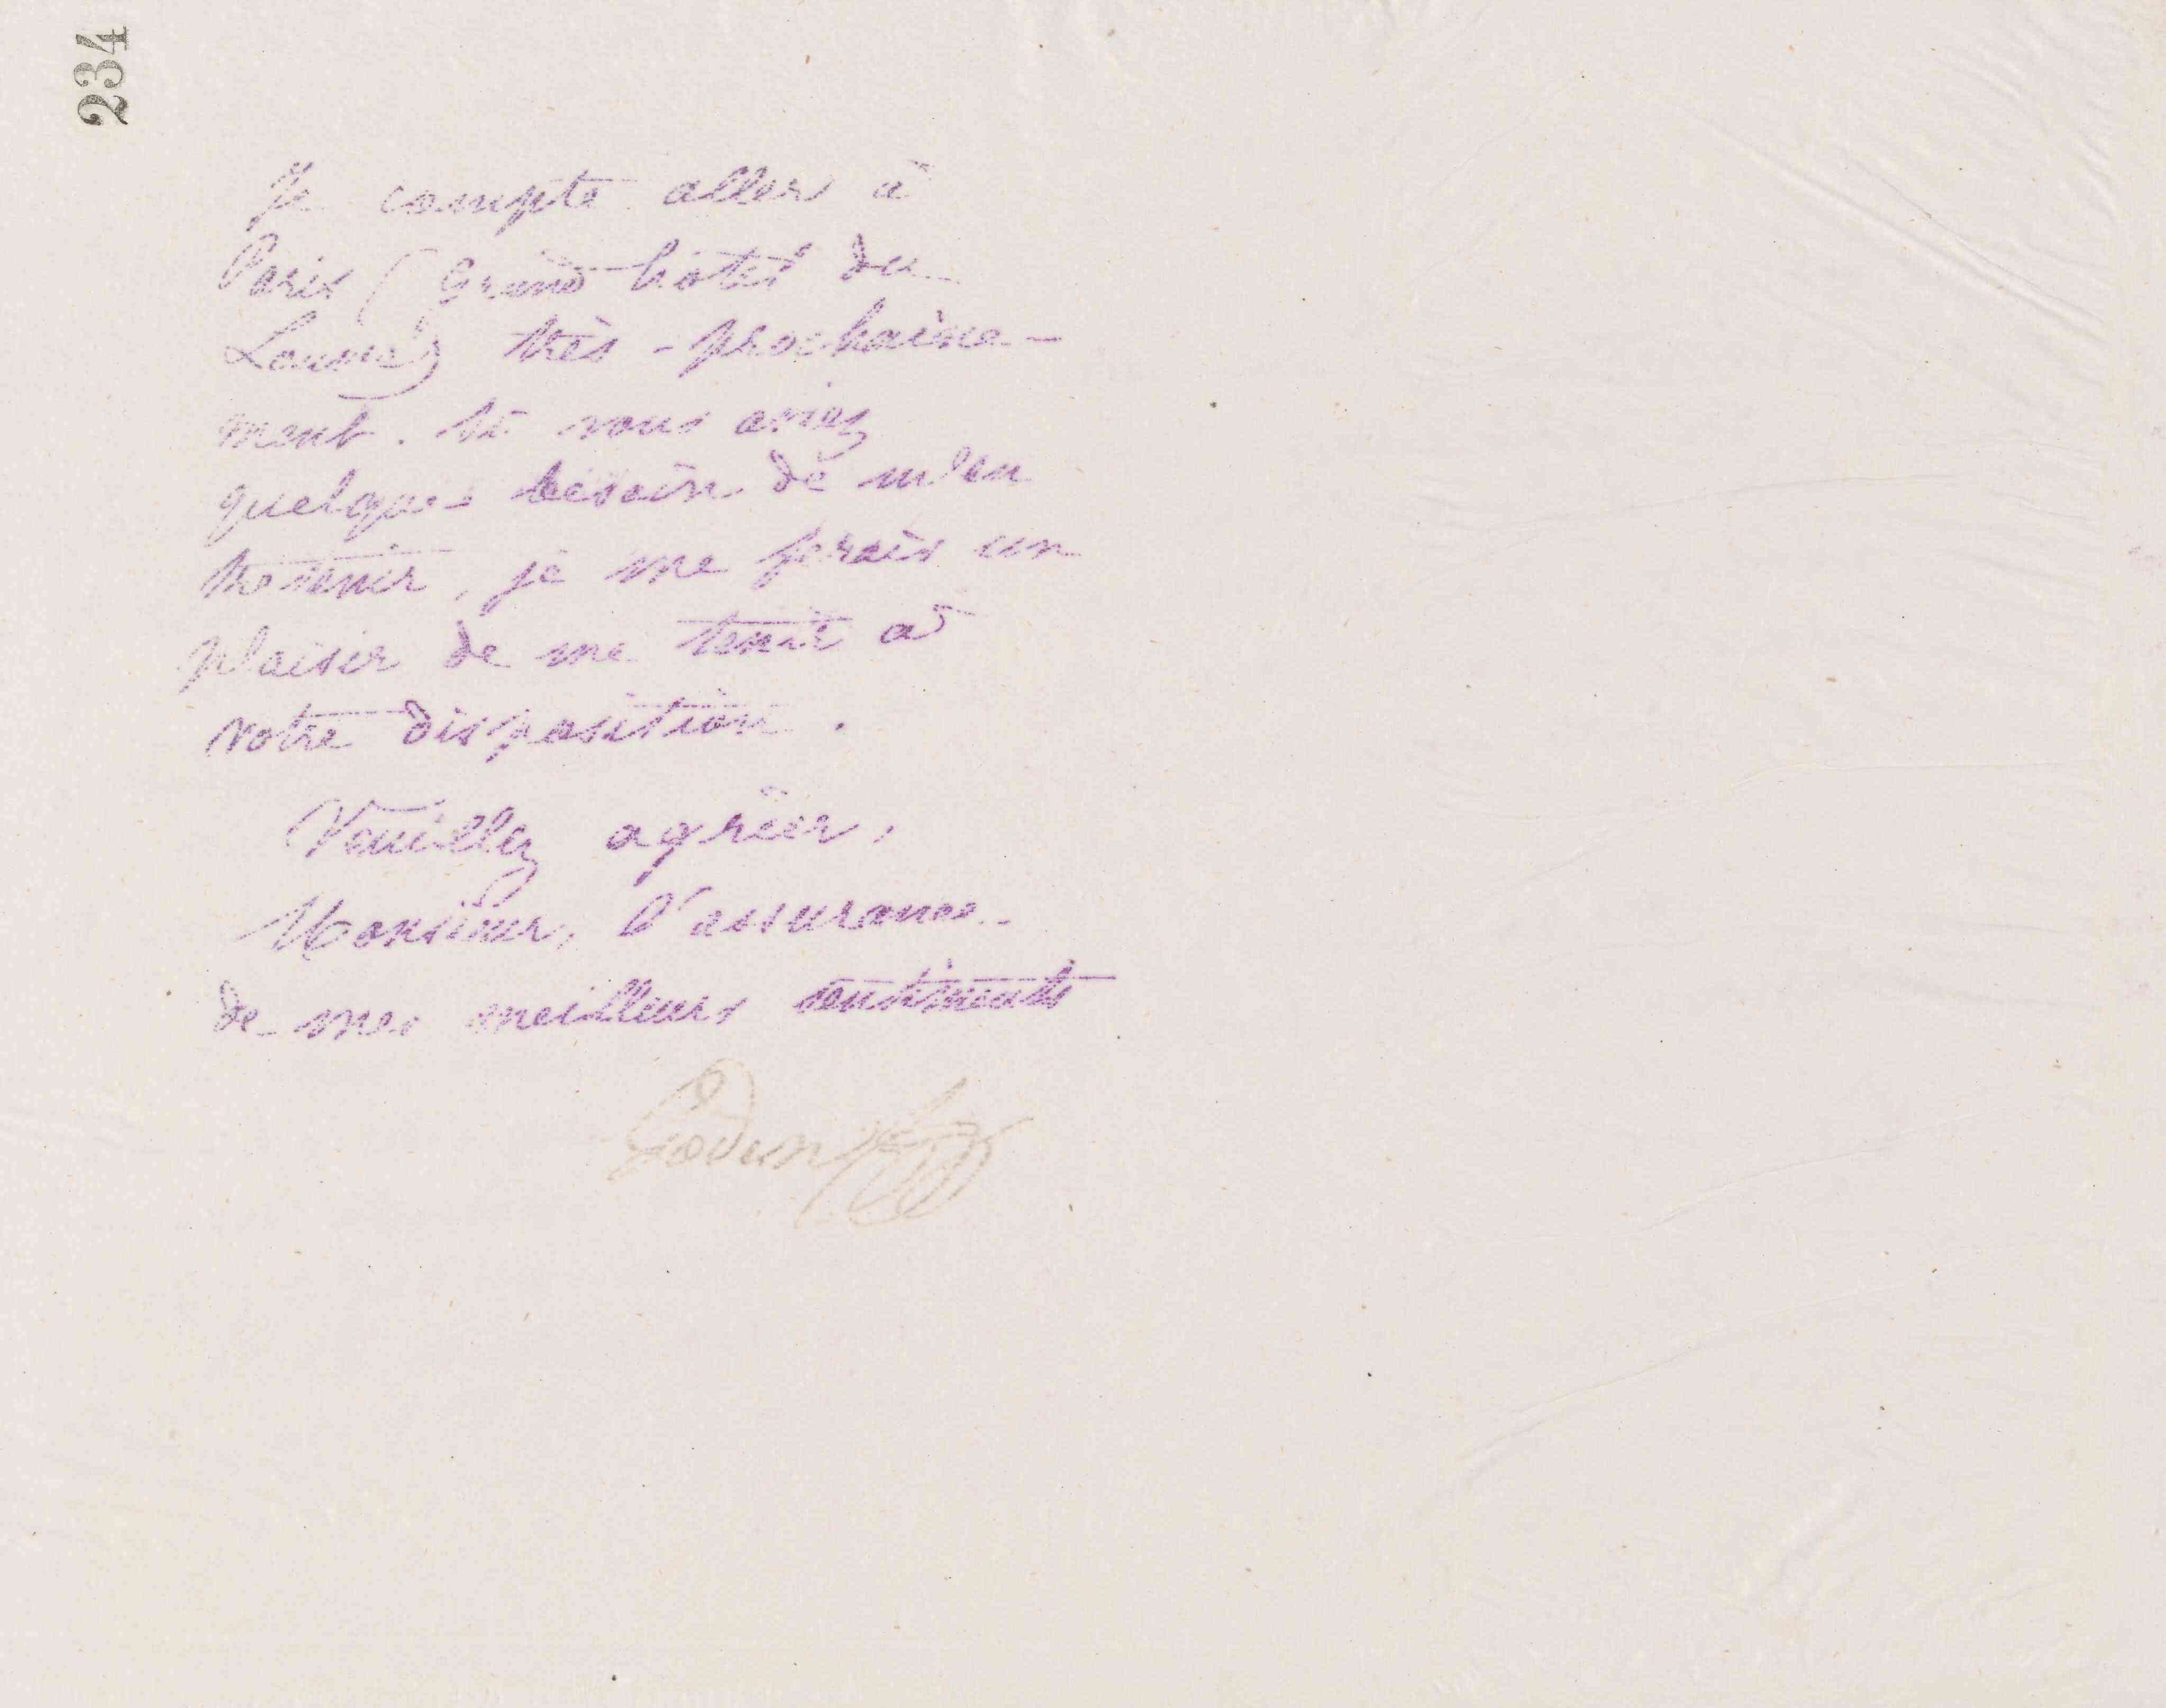 234
Je compte aller à
Paris (Grand hôtel du
Louvre) très-prochaine-
ment. Si vous aviez
quelque besoin de m'en
tretenir, je me ferais un
plaisir de me tenir à
votre disposition.
Veuillez agréer,
Monsieur, l'assurance
de mes meilleurs sentiments
Godin